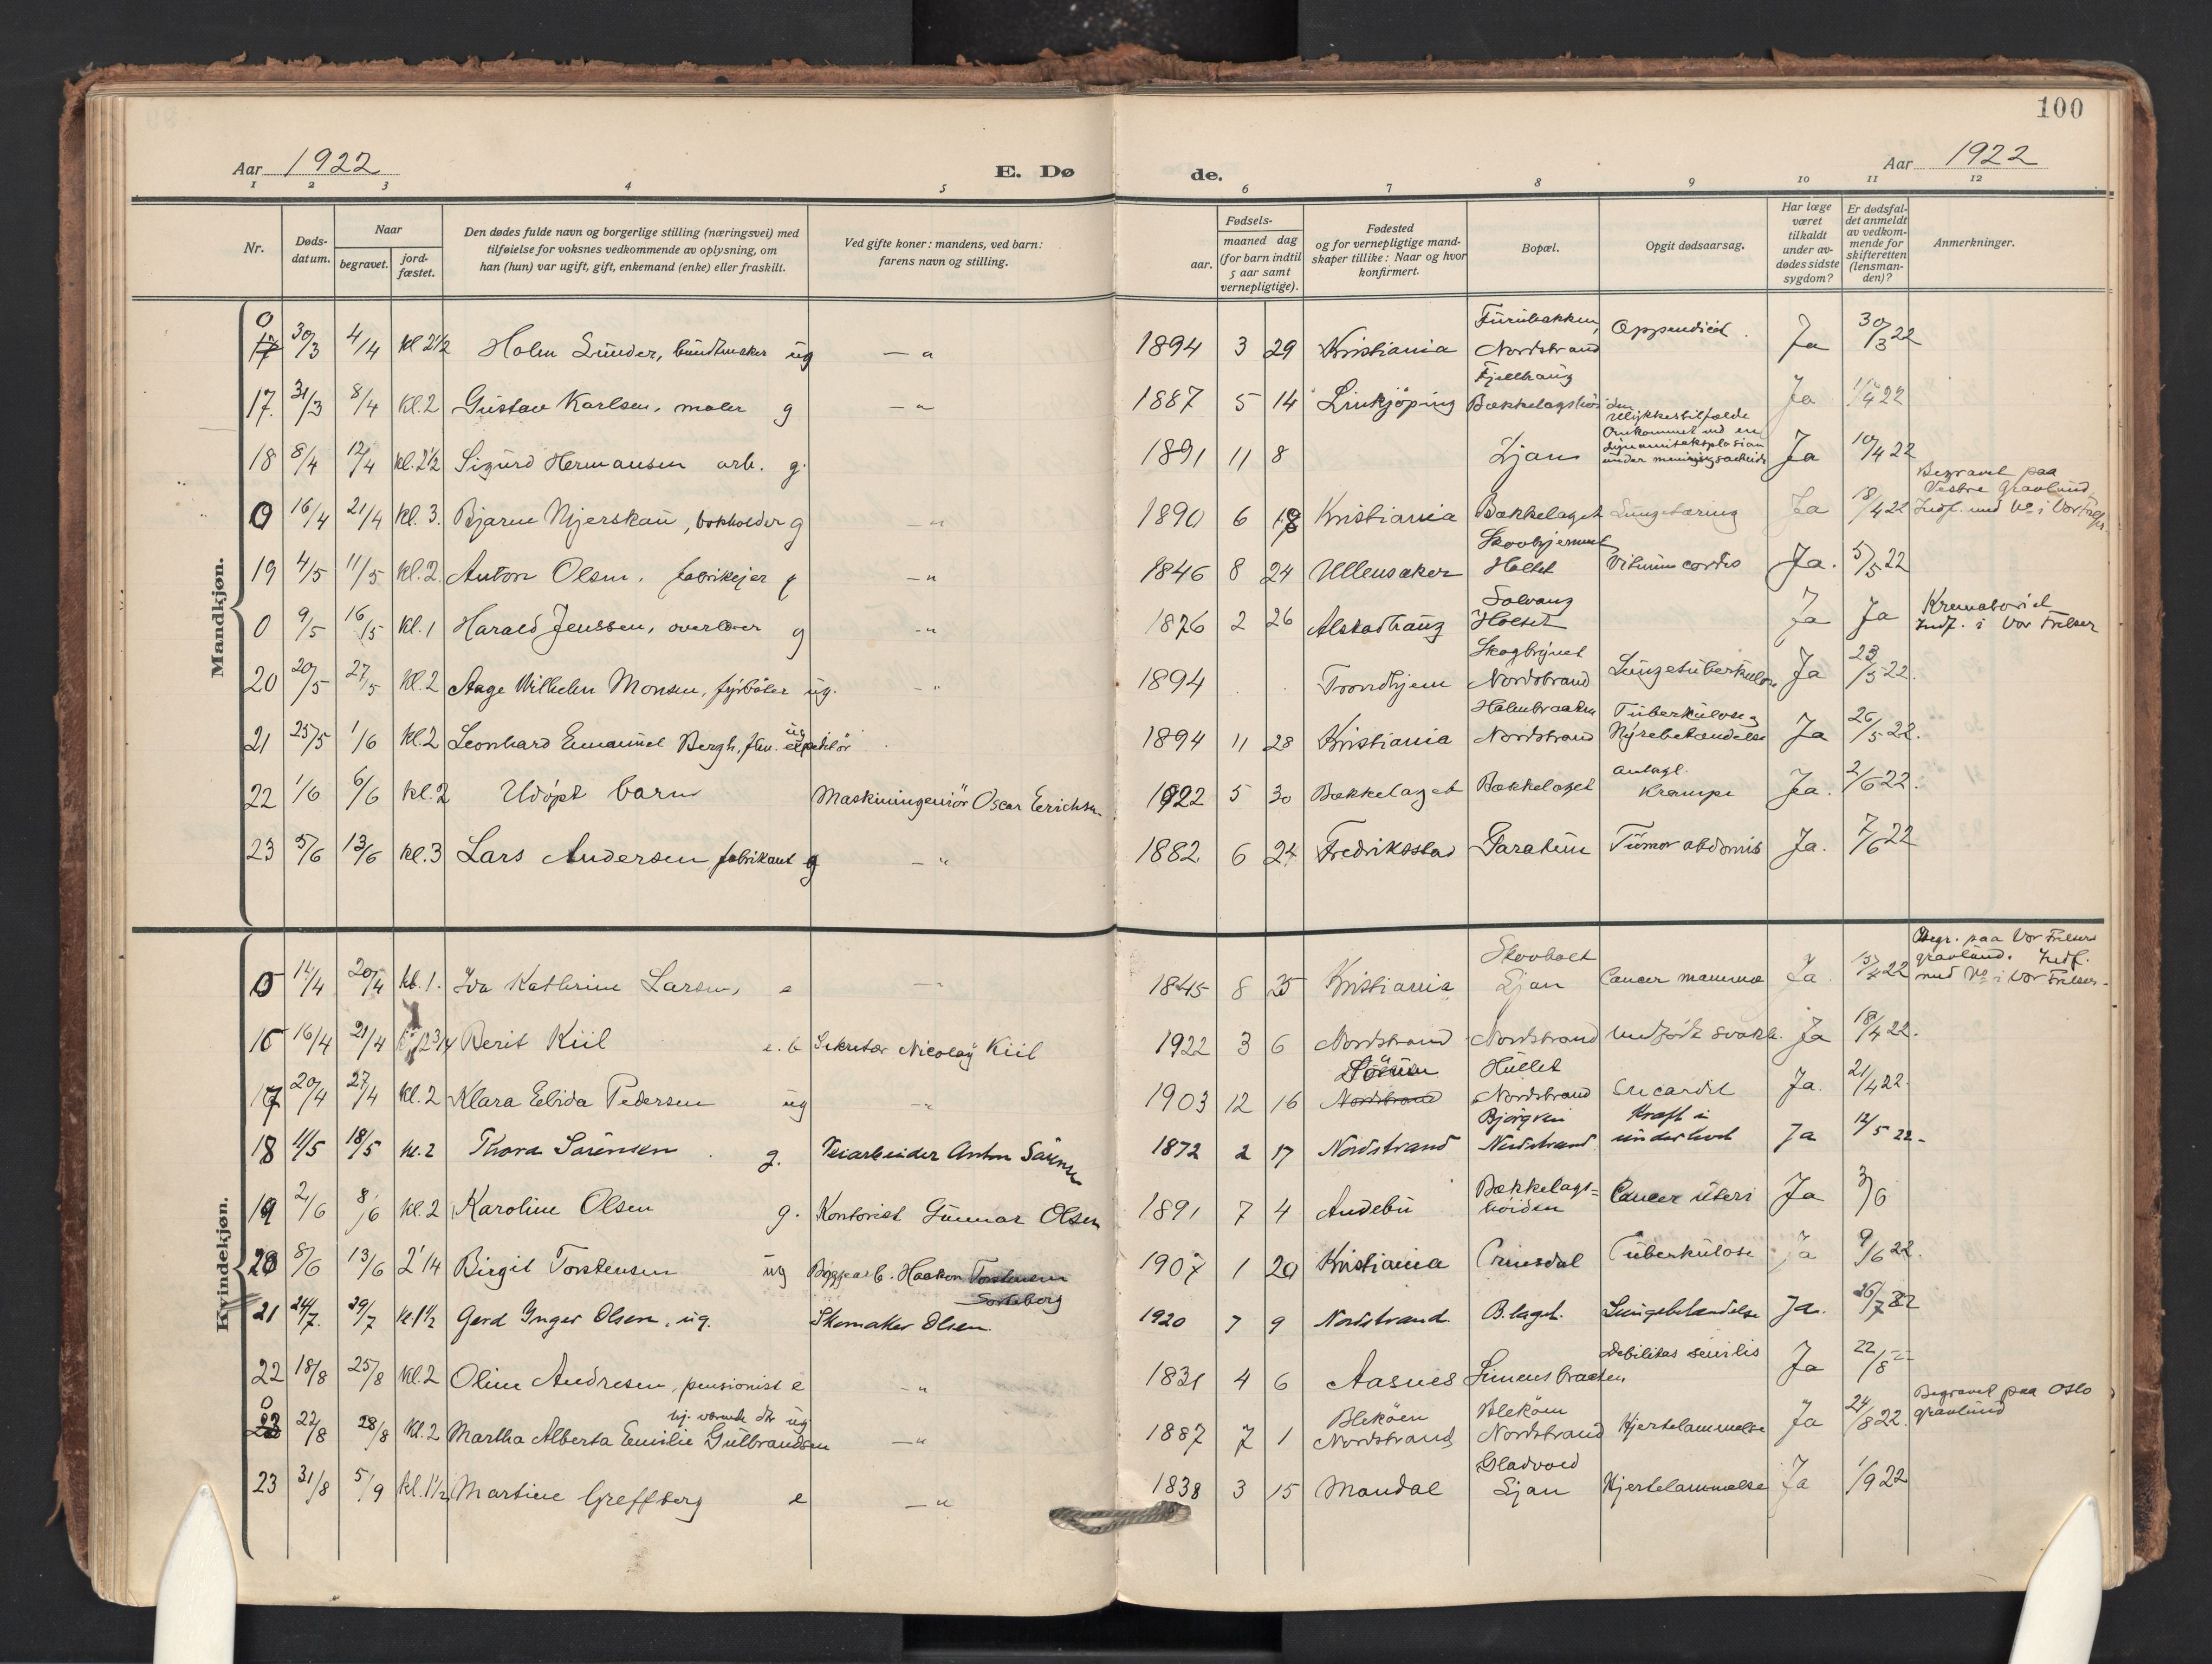 100
Aar 1922 E. Dø de. Aar 1922
1 2 3 4 5 6 7 8 9 10 11 12
Nr. Døds-datum. Naar begravet. jord-fæstet. Den dødes fulde navn og borgerlige stilling (næringsvei) med tilføielse for voksnes vedkommende av oplysning, om han (hun) var ugift, gift, enkemand (enke) eller fraskilt. Ved gifte koner: mandens, ved barn: farens navn og stilling. Fødsels- aar. maaned dag (for barn indtil 5 aar samt vernepligtige). Fødested og for vernepligtige mand-skaper tillike: Naar og hvor konfirmert. Bopæl. Opgit dødsaarsag. Har læge været tilkaldt under av-dødes sidste sygdom? Er dødsfal-det anmeldt av vedkom-mende for skifteretten (lensman-den)? Anmerkninger.
Mandkjøn.
0 17 30/3 4/4 kl 2 1/2 Holm Sunder, buntmaker ug — " 1894 3 29 Kristiania Furubakken, Nordstrand Appendicit. Ja 30/3 22
17. 31/3 8/4 kl. 2 Gustav Karlsen, maler g — " 1887 5 14 Linkjöping Fjellhaug Bækkelagshöiden Ja 1/4 22
18 8/4 12/4 kl. 2 1/2 Sigurd Hermansen arb. g. 1891 11 8 Ljan Ulykkestilfælde Omkommet ved en dynamiteksplosion under mineringsarbeide Ja 10/4 22
0 16/4 21/4 kl. 3. Bjarne Njerskau, bokholder g — " 1890 6 18 Kristiania Bækkelaget Lungetæring Ja 18/4 22 Begravet paa Vestre Gravlund. Indf. med No i Vor Frelser.
19 4/5 11/5 kl. 2. Anton Olsen, fabrikejer g — " 1846 8 24 Ullensaker Skovhjemmet Holtet Vitium cordis Ja. 5/5 22
0 9/5 16/5 kl. 1 Harald Jenssen, overlærer g — " 1876 2 26 Alstadhaug Solvang Holtet Ja Ja Krematoriet Indf. i Vor Frelser
20 20/5 27/5 kl. 2 Aage Wilhelm Monsen, fyrböter ug. — " 1894 Trondhjem Skogbrynet Nordstrand Lungetuberkulose Ja 23/5 22.
21 25/5 1/6 kl. 2 Leonhard Emanuel Bergh, ug ekspeditör 1894 11 28 Kristiania Holmbraaten Nordstrand Tuberkulose, Nyrebetændelse Ja 26/5 22.
22 1/6 6/6 kl. 2 Udöpt barn Maskiningeniör Oscar Erichsen 1922 5 30 Bækkelaget Bækkelaget antagl. Krampe Ja. 2/6 22.
23 5/6 13/6 kl. 3 Lars Andersen fabrikant g — " 1882 6 24 Fredriksstad Tumor abdomis Ja. 7/6 22
Kvindekjøn.
0 14/4 20/4 kl. 1. Ida Kathrine Larsen, e — " 1845 8 25 Kristiania Skovholt Ljan Cancer mammæ Ja 15/4 22 Begr. paa Vor Frelsers gravlund. Indf. med No i Vor Frelser.
16 16/4 21/4 Berit Kiil e. b Sekretær Nicolay Kiil 1922 3 6 Nordstrand Nordstrand medfödt svakh. Ja 18/4 22.
17 20/4 27/4 kl. 2 Klara Elida Pedersen ug — " 1903 12 16 Sörum Nordstrand Hullet Nordstrand Encardit Ja. 21/4 22.
18 11/5 18/5 kl. 2 Thora Sörensen g. Veiarbeider Anton Sörensen 1872 2 17 Nordstrand Björgvin Nordstrand Kræft i underlivet Ja 12/5 22.
19 2/6 8/6 kl. 2 Karoline Olsen g. Kontorist Gunnar Olsen 1891 7 4 Andebu Bækkelags-höiden Cancer uteri Ja 3/6
20 8/6 13/6 2 1/4 Birgit Torstensen ug Byggearb. Haakon Torstensen Sorteberg 1907 1 20 Kristiania Tuberkulose Ja 9/6 22.
21 24/7. 29/7 kl 1 1/2 Gerd Inger Olsen, ug. Skomaker Olsen. 1920 7 9 Nordstrand. B. laget. Lungebetændelse Ja. 26/7 22
22 18/8 25/8 kl. 2 Oline Andresen, pensionist e — " 1831 4 6 Aasnes Simensbraaten Debilitas senilis Ja 22/8 22
0 23 22/8 28/8 kl. 2 Martha Alberta Emilie Gulbrandsen hj. værende dtr ug — " 1887 7 1 Bleköen Nordstrand Bleköen Nordstrand Hjertelammelse Ja 24/8 22. Begravet paa Oslo gravlund
23 31/8 5/9 kl. 1 1/2 Martine Greffberg e — " 1838 3 15 Mandal Gladvold Ljan Hjertelammelse Ja 1/9 22